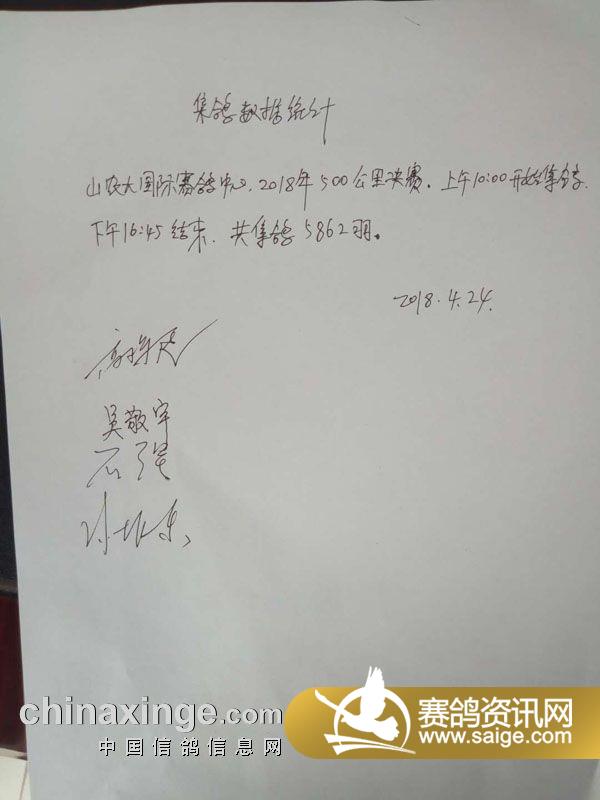 集鸽数据统计
山农大国际赛鸽中心，2018年500公里决赛，上午10:00开始集鸽，
下午16:45结束，共集鸽5862羽。
2018.4.24.
吴敬宇
石强
chinaxinge.com
中国信鸽信息网
赛鸽资讯网
www.saige.com